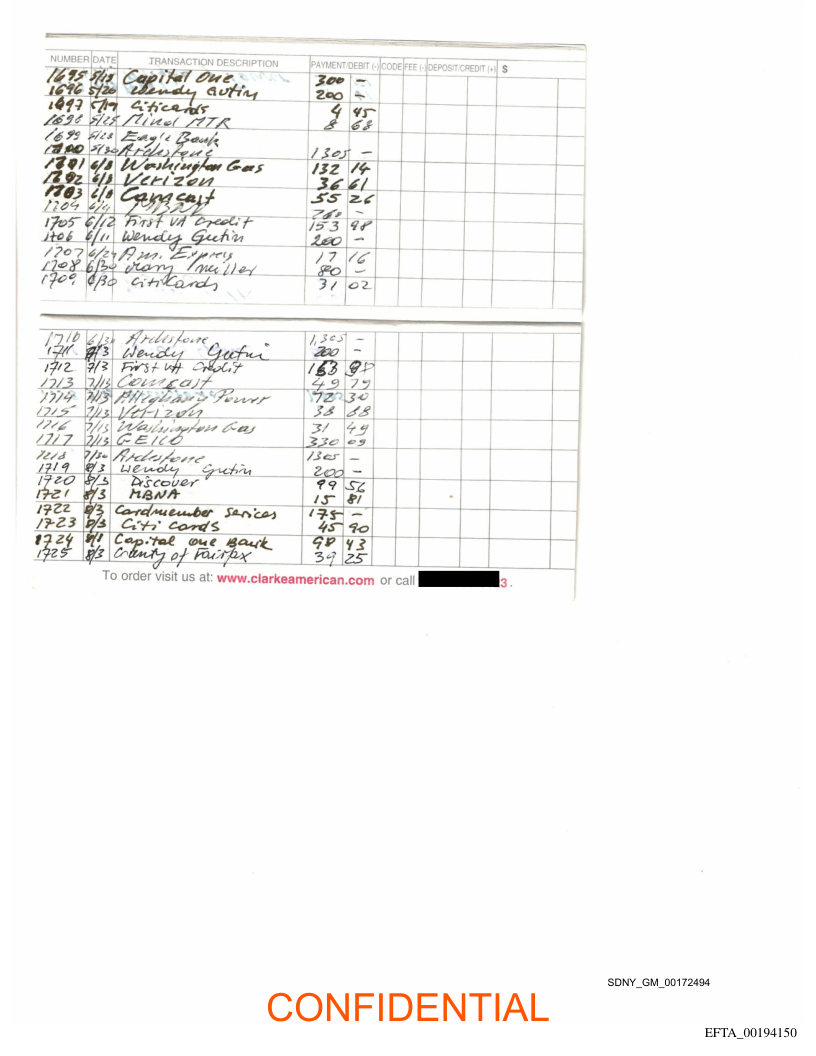 NUMBER DATE TRANSACTION DESCRIPTION PAYMENT/DEBIT (-) CODE FEE (-) DEPOSIT/CREDIT (+) $
1695 5/18 Capital One 300 -
1696 5/20 Wendy Gutin 200 -
1697 5/19 Citicards 4 45
1698 5/25 Mind MTR 8 68
1699 5/28 Eagle Bank
1700 5/30 Archstone 1305 -
1701 6/8 Washington Gas 132 14
1702 6/8 Verizon 36 61
1703 6/8 Comcast 55 26
1704 6/4 -
1705 6/12 First VA Credit 153 98
1706 6/11 Wendy Gutin 200 -
1707 6/27 Am. Express 17 16
1708 6/30 Miller 80 -
1709 6/30 Citi Cards 31 02
1710 6/30 Archstone 1,305 -
1711 7/3 Wendy Gutin 200 -
1712 7/3 First VA Credit 98
1713 7/13 Comcast 49 79
1714 7/13 Alleghany Power 30
1715 7/13 Verizon 38 88
1716 7/13 Washington Gas 31 49
1717 7/13 GEICO 330 09
1718 7/30 Archstone 1305 -
1719 8/3 Wendy Gutin 200 -
1720 8/3 Discover 99 56
1721 8/3 MBNA 15 81
1722 8/3 Cardmember Services 175 -
1723 8/3 Citi Cards 45 90
1724 8/1 Capital One Bank 98 43
1725 8/3 County of Fairfax 39 25
To order visit us at: www.clarkeamerican.com or call 3.
SDNY_GM_00172494
CONFIDENTIAL
EFTA_00194150